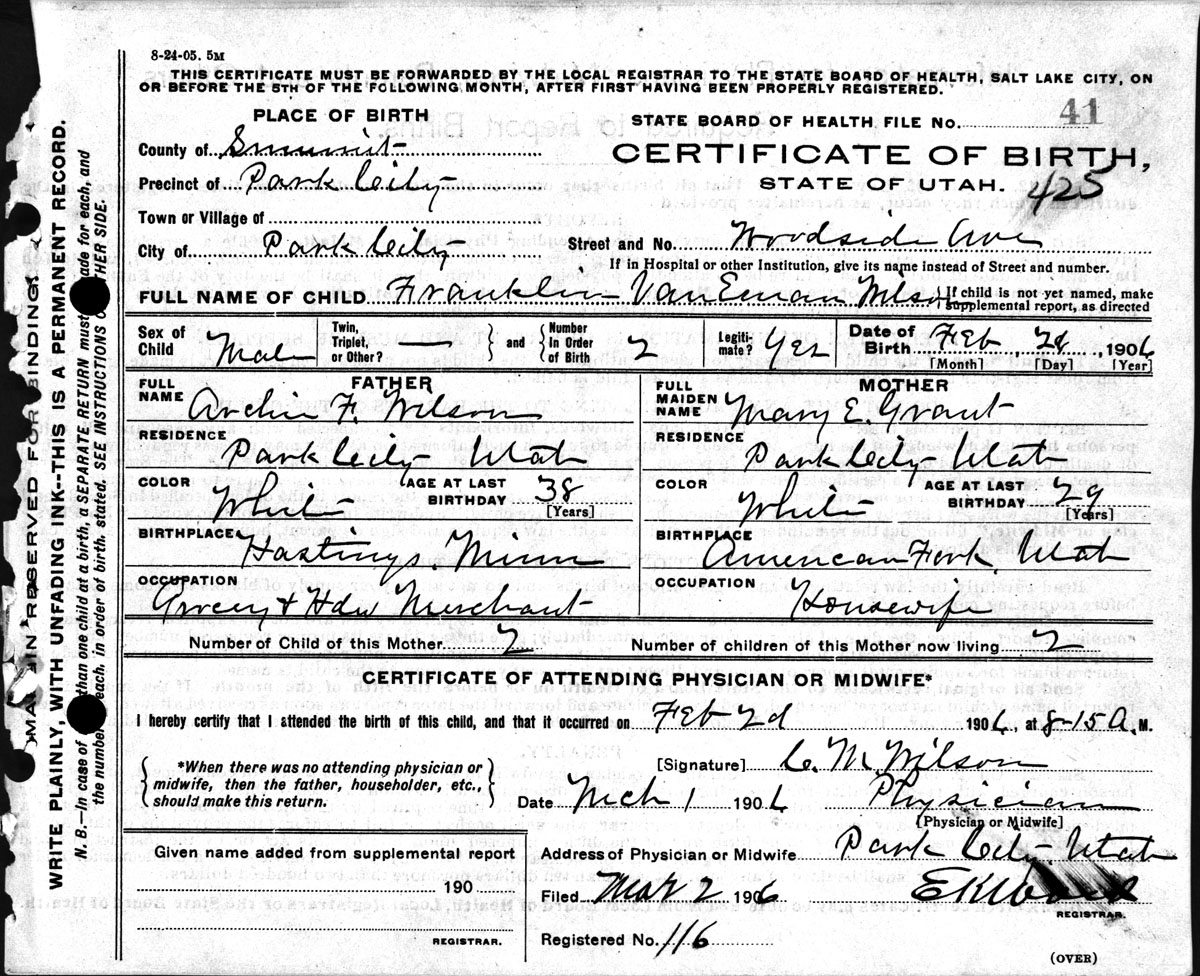 8-24-05. 5M
THIS CERTIFICATE MUST BE FORWARDED BY THE LOCAL REGISTRAR TO THE STATE BOARD OF HEALTH, SALT LAKE CITY, ON
OR BEFORE THE 5TH OF THE FOLLOWING MONTH, AFTER FIRST HAVING BEEN PROPERLY REGISTERED.
PLACE OF BIRTH
STATE BOARD OF HEALTH FILE No. 41
County of Summit
CERTIFICATE OF BIRTH,
Precinct of Park City
STATE OF UTAH. 425
Town or Village of
City of Park City Street and No. Woodside Ave
If in Hospital or other Institution, give its name instead of Street and number.
FULL NAME OF CHILD Franklin VanEman Wilson
If child is not yet named, make
supplemental report, as directed
Sex of Child Male
Twin, Triplet, or Other?
and
Number In Order of Birth 2
Legiti-mate? Yes
Date of Birth Feb 1906
[Month] [Day] [Year]
FATHER
FULL NAME Archie F. Wilson
MOTHER
FULL MAIDEN NAME Mary E Grant
RESIDENCE Park City Utah
RESIDENCE Park City Utah
COLOR White AGE AT LAST BIRTHDAY 38 [Years]
COLOR White AGE AT LAST BIRTHDAY 29 [Years]
BIRTHPLACE Hastings Minn
BIRTHPLACE American Fork, Utah
OCCUPATION Grocery & Hdw Merchant
OCCUPATION Housewife
Number of Child of this Mother 2
Number of children of this Mother now living 2
CERTIFICATE OF ATTENDING PHYSICIAN OR MIDWIFE*
I hereby certify that I attended the birth of this child, and that it occurred on Feb 1906, at 8-15 A. M.
*When there was no attending physician or
midwife, then the father, householder, etc.,
should make this return.
[Signature] C. M. Wilson
Date Mch 1 1906 Physician
[Physician or Midwife]
Given name added from supplemental report
190
REGISTRAR.
Address of Physician or Midwife Park City Utah
Filed Mar 2 1906
REGISTRAR.
Registered No. 116
(OVER)
MARGIN RESERVED FOR BINDING.
WRITE PLAINLY, WITH UNFADING INK--THIS IS A PERMANENT RECORD.
N. B.—In case of than one child at a birth, a SEPARATE RETURN must made for each, and
the number each, in order of birth, stated. SEE INSTRUCTIONS OTHER SIDE.